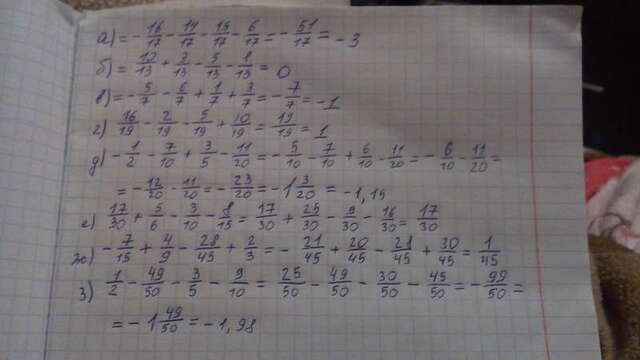 а) = -16/17 - 14/17 - 15/17 - 6/17 = -51/17 = -3
б) = 12/13 + 2/13 - 5/13 - 1/13 = 0
в) = -5/7 - 6/7 + 1/7 + 3/7 = -7/7 = -1
г) 16/19 - 2/19 - 5/19 + 10/19 = 19/19 = 1
д) -1/2 - 7/10 + 3/5 - 11/20 = -5/10 - 7/10 + 6/10 - 11/20 = -6/10 - 11/20 =
= -12/20 - 11/20 = -23/20 = -1 3/20 = -1,15
е) 17/30 + 5/6 - 3/10 - 8/15 = 17/30 + 25/30 - 9/30 - 16/30 = 17/30
ж) -7/15 + 4/9 - 28/45 + 2/3 = -21/45 + 20/45 - 28/45 + 30/45 = 1/45
з) 1/2 - 49/50 - 3/5 - 9/10 = 25/50 - 49/50 - 30/50 - 45/50 = -99/50 =
= -1 49/50 = -1,98